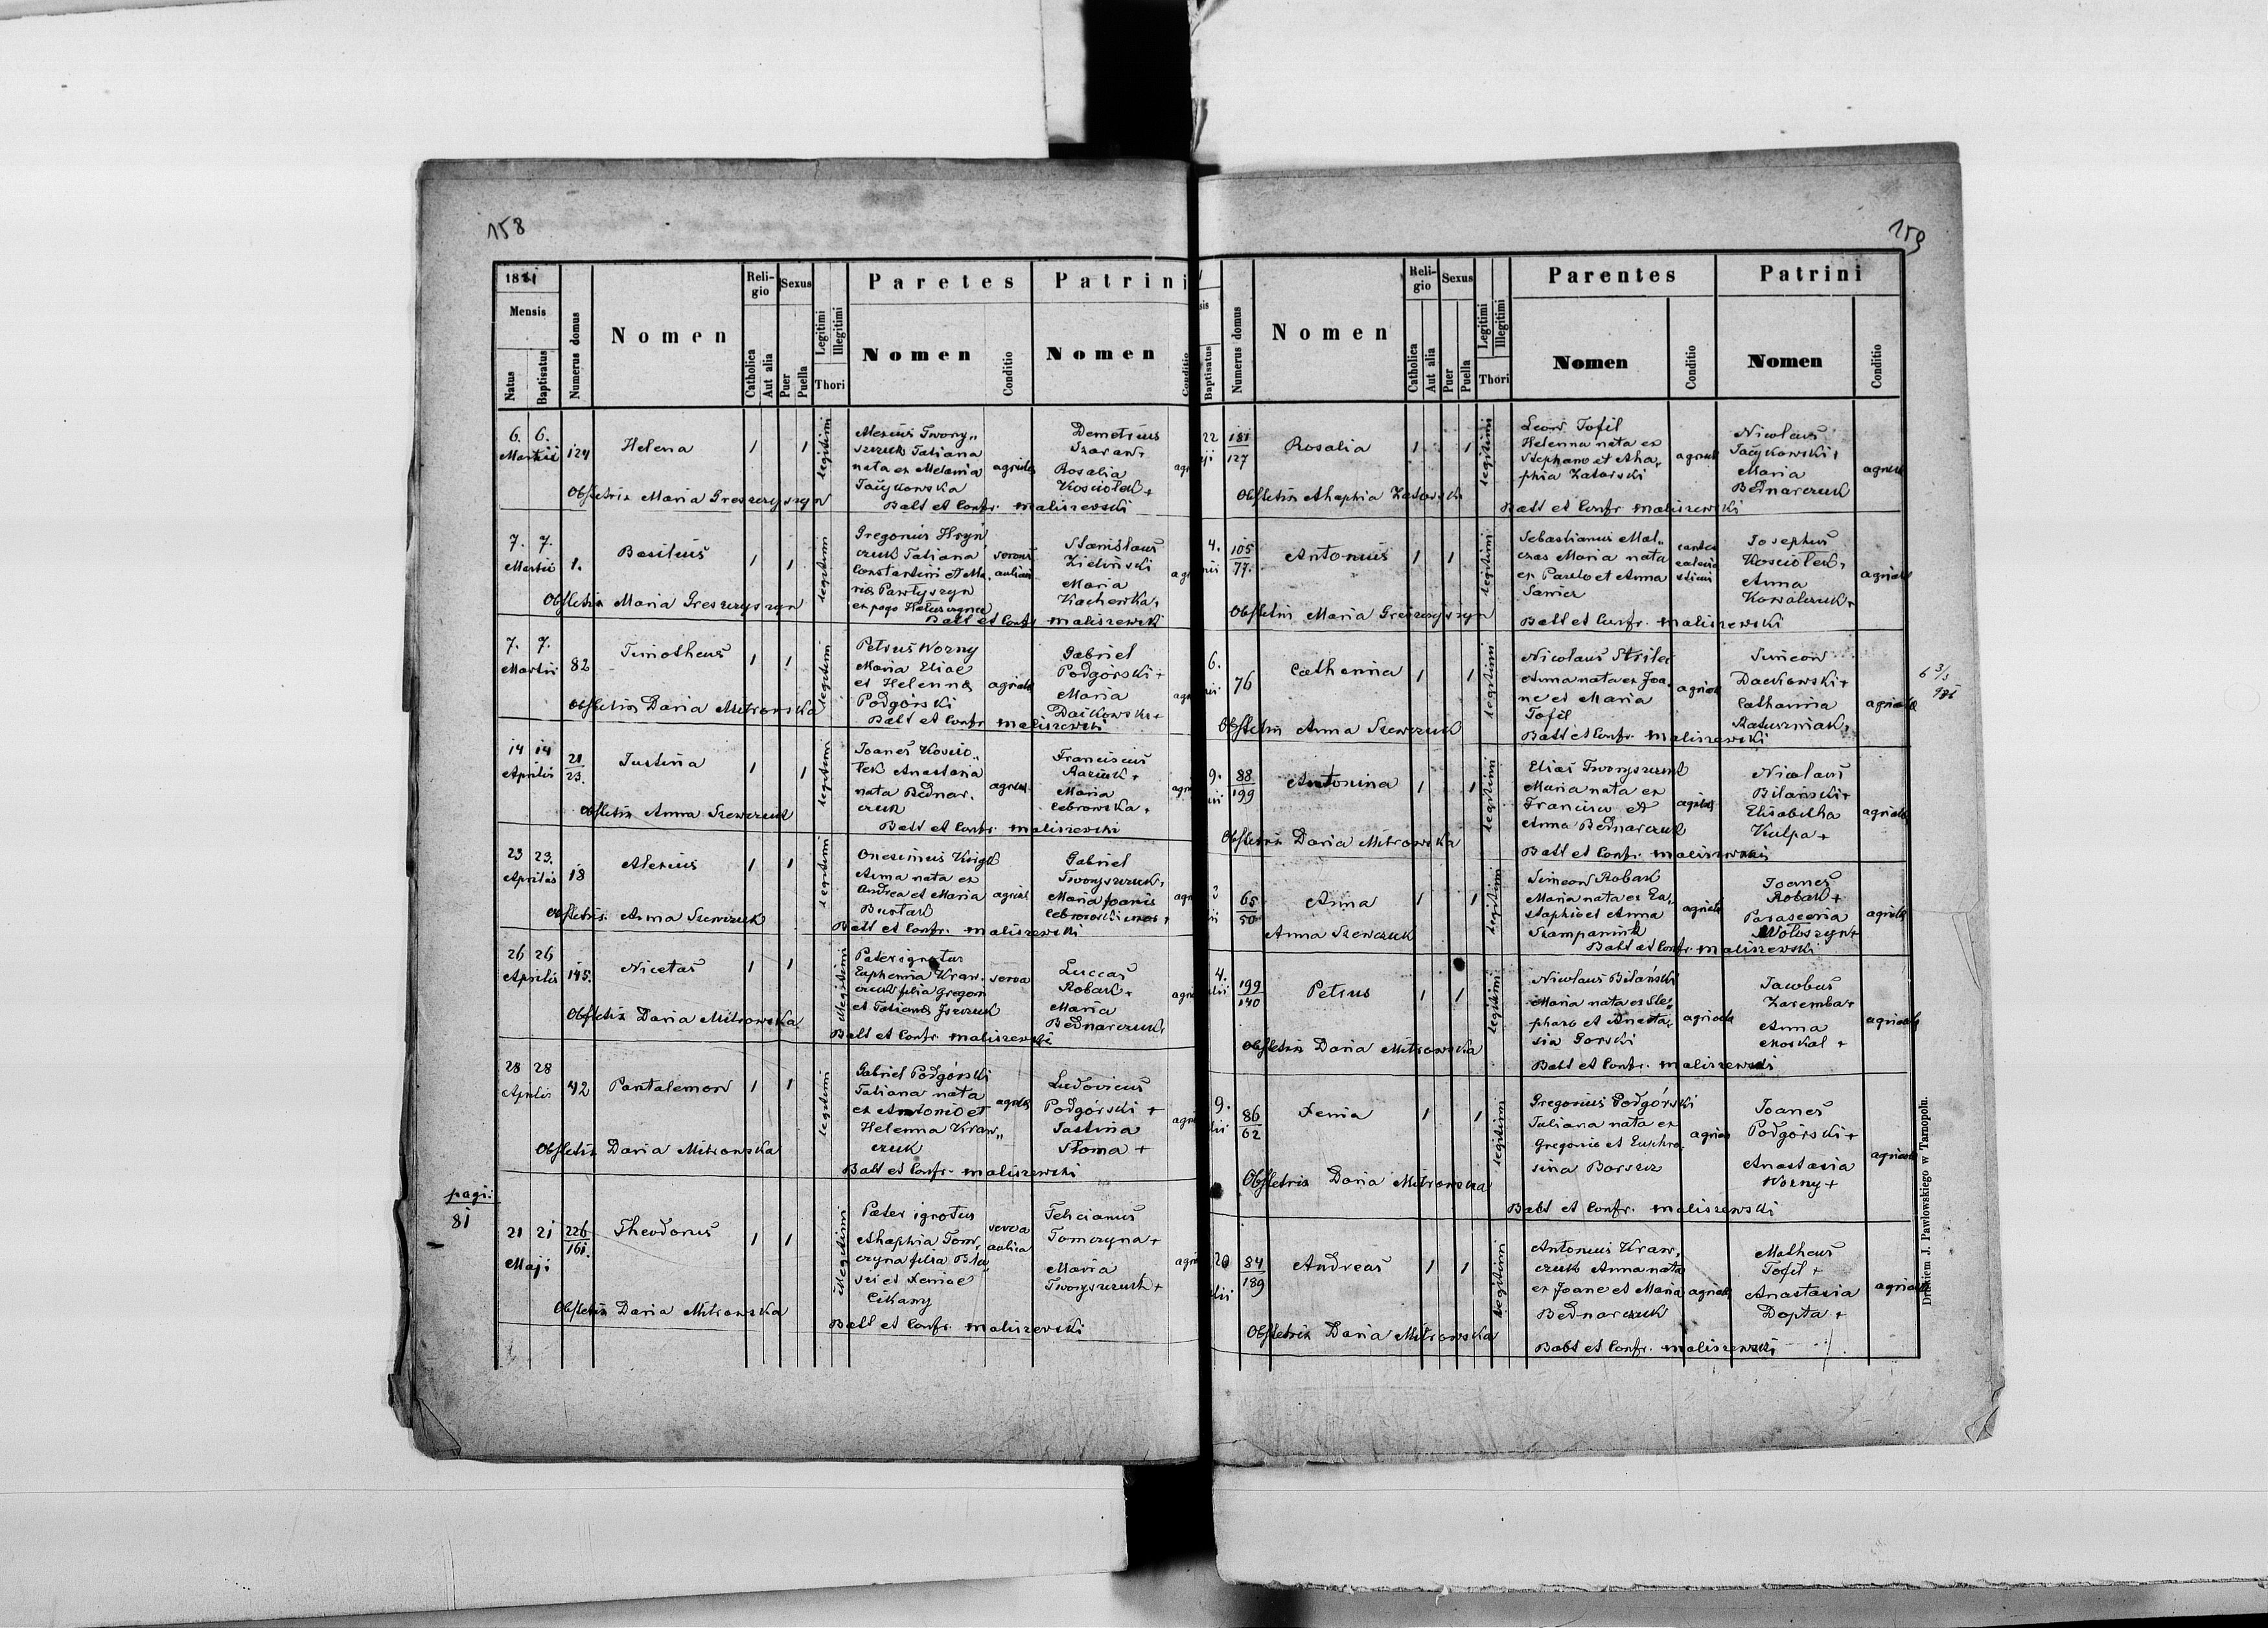 158
1881
Mensis
Natus
Baptisatus
Numerus domus
Nomen
Religio
Catholica
Aut alia
Sexus
Puer
Puella
Legitimi
Illegitimi
Thori
Paretes
Nomen
Conditio
Patrini
Nomen
Conditio
6. 6.
Martii
124
Helena
1 1
legitimi
Alexius Twony„
szczuk Tatiana
nata ex Melania
Taćykowska
agricola
Demetrius
Rosalia
Kosciołek +
Obstetrix Maria Greszczyszyn
Babt et Confr. Maliszewski
7. 7.
Martii
1.
Basilius
1 1
legitimi
Gregorius Hryń
czuk Tatiana
Constantini et Ma.
riæ Pawłyszyn
ex pago
Stanislaus
Zieliński
Maria
Kachewka,
Obstetrix Maria Greszczyszyn
Babt et Confr. Maliszewski
7. 7.
Martii
82
Timotheus
1 1
legitimi
Petrus Worny
Maria Eliae
et Helennæ
Podgórski
agricola
Gabriel
Podgórski +
Maria
Daćkowska +
Obstetrix Daria Mitrowska
Babt et Confr Maliszewski
14 14
Aprilis
21
23.
Justina
1 1
legitimi
Joanes Koscio„
łek Anastasia
nata Bednar.
czuk
agricol.
Franciscus
+
Maria
Cebrowska +
Obstetrix Anna Szewczuk
Babt et Confr. Maliszewski
23 23.
Aprilis
18
Alexius
1 1
legitimi
Onesimus
Anna nata ex
Andrea et Maria
agricol.
Gabriel
Twonyszczuk,
Maria Joanis
Obstetrix Anna Szewczuk
Babt et Confr. Maliszewski
26 26
Aprilis
145.
Nicetas
1 1
illegitimi
Pater ignotus
Euphemia Kraw.
czuk filia Gregori
et Tatianæ
serva
Luccas
Robak +
Maria
Bednarczuk,
Obstetrix Daria Mitrowska
Babt et Confr. Maliszewski
28 28
Aprilis
42
Pantalemon
1 1
legitimi
Gabriel Podgórski
Tatiana nata
ex Antonio et
Helenna Kraw„
czuk
agricola
Ludovicus
Podgórski +
Justina
Słoma +
Obstetrix Daria Mitrowska
Babt et Confr. Maliszewski
pagi:
81
21 21
Maji
226
161.
Theodorus
1 1
illegitimi
Pater ignotus
Ahaphia Tom,
czyna filia Bla„
sii et Xeniae
Cikany
serva
aulica
Felicianus
Tomczyna +
Maria
Twonyszczuk +
Obstetrix Daria Mitrowska
Babt et Confr. Maliszewski
159
Baptisatus
Numerus domus
Nomen
Religio
Catholica
Aut alia
Sexus
Puer
Puella
Legitimi
Illegitimi
Thori
Parentes
Nomen
Conditio
Patrini
Nomen
Conditio
22
181
127
Rosalia
1 1
legitimi
Leon Tofil
Helenna nata ex
Stephano et Aha,
phia Zatorski
agricola
Nicolaus
Taćykowski +
Maria
Bednarczuk
agricola
Obstetrix Ahaphia Zatorska
Babt et Confr Maliszewski
4.
105
77.
Antonius
1 1
legitimi
Sebastianus Mal„
czas Maria nata
ex Paulo et Anna
Josephus
Kosciołek,
Anna
Kowalczuk +
agricola
Obstetrix Maria Greszczyszyn
Babt et Confr. Maliszewski
6.
76
Catherina
1 1
legitimi
Nicolaus Strilec
Anna nata ex Joa„
ne et Maria
Tofil
agricola
Simeon
Daćkowski +
Catharina
Ratuszniak,
agricola
Obstetrix Anna Szewczuk
Babt et Confr. Maliszewski
9.
88
199
Antonina
1 1
legitimi
Elias Twonyszczuk
Maria nata ex
Francisco et
Anna Bednarczuk
agricola
Nicolaus
Bilański +
Elisabetha
Kulpa +
agricola
Obstetrix Daria Mitrowska
Babt et Confr. Maliszewski
65
50
Anna
1 1
legitimi
Simeon Robak
Maria nata ex Eu„
staphio et Anna
Stampaniuk
agricola
Joanes
Robak +
Parascevia
Wołoszyn +
agricola
Anna Szewczuk
Babt et Confr. Maliszewski
4.
199
140
Petrus
1 1
legitimi
Nicolaus Bilański
Maria nata ex Ste„
phano et Anasta„
sia Gorski
agricola
Jacobus
Zaremba +
Anna
Moskal +
agricola
Obstetrix Daria Mitrowska
Babt et Confr. Maliszewski
9.
86
62
Xenia
1 1
legitimi
Gregorius Podgórski
Tatiana nata ex
Gregorio et Euphro
sina Barszcz
agricola
Joanes
Podgórski +
Anastasia
Worny +
agricola
Obstetrix Daria Mitrowska
Babt et Confr. Maliszewski
20
84
189
Andreas
1 1
legitimi
Antonius Kraw,
czuk Anna nata
ex Joane et Maria
Bednarczuk
agricola
Matheus
Tofil +
Anastasia
Dopta +
agricola
Obstetrix Daria Mitrowska
Babt et Confr. Maliszewski
Drukiem J. Pawłowskiego w Tarnopolu.